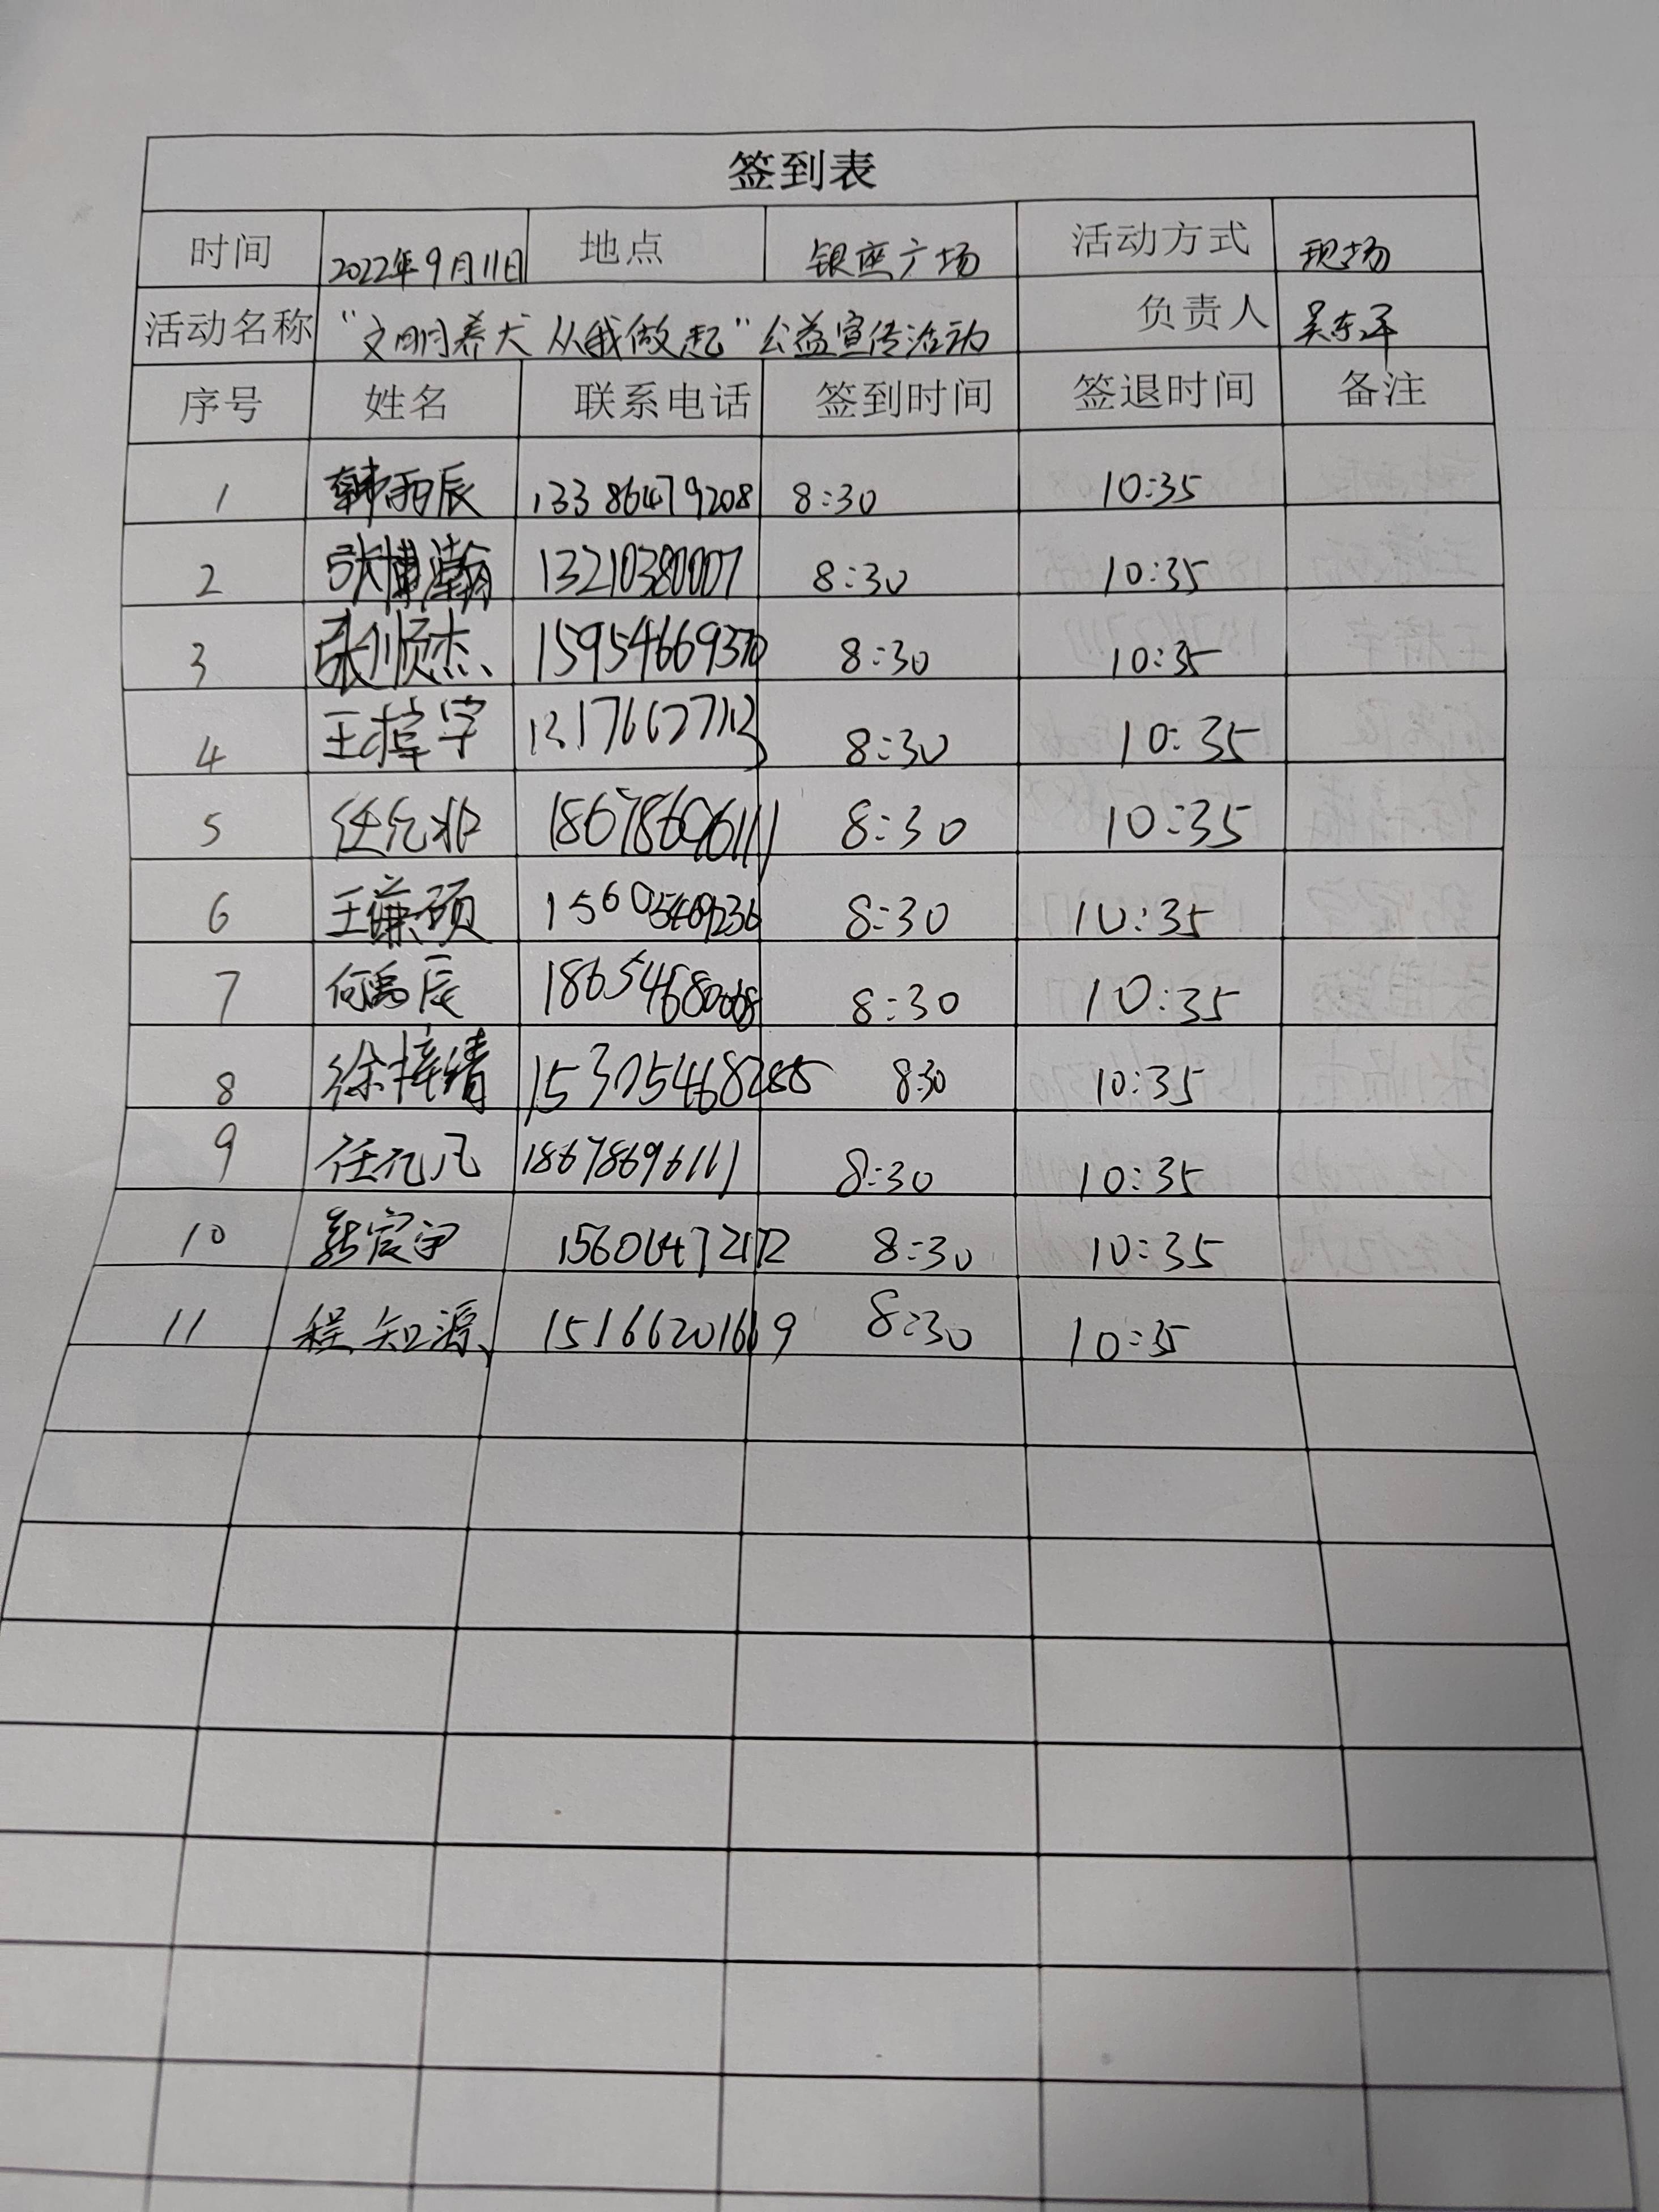 签到表
时间 2022年9月11日 地点 银座广场 活动方式 现场
活动名称 "文明养犬 从我做起"公益宣传活动 负责人 吴东平
序号 姓名 联系电话 签到时间 签退时间 备注
1 韩雨辰 13386479208 8:30 10:35
2 张博瀚 13210380007 8:30 10:35
3 张顺杰 15954669370 8:30 10:35
4 王梓宇 8:30 10:35
5 任亿北 18678696111 8:30 10:35
6 王谦硕 15605469236 8:30 10:35
7 何禹辰 18654680068 8:30 10:35
8 徐梓绪 8:30 10:35
9 任亿凡 18678696111 8:30 10:35
10 8:30 10:35
11 程知源 15166201669 8:30 10:35